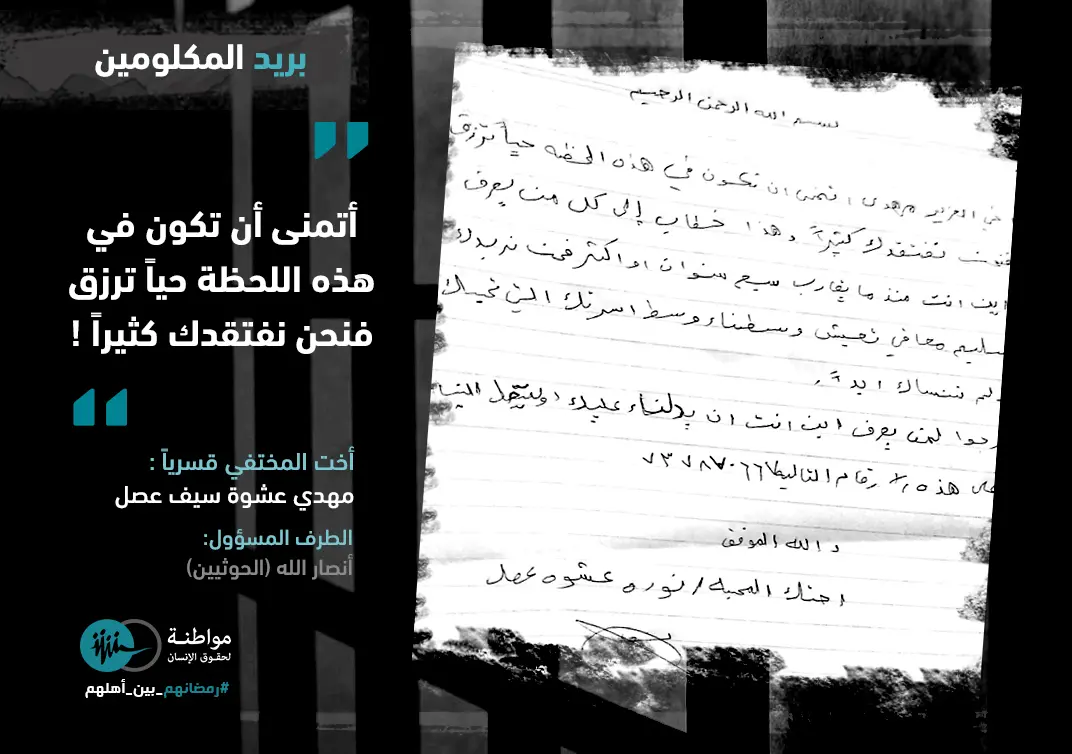 بريد المكلومين
"
أتمنى أن تكون في
هذه اللحظة حياً ترزق
فنحن نفتقدك كثيراً !
"
أخت المختفي قسرياً :
مهدي عشوة سيف عصل
الطرف المسؤول:
أنصار الله (الحوثيين)
مواطنـة
لحقـوق الإنسان
#رمضانهم_بين_أهلهم
بسم الله الرحمن الرحيم
اخي العزيز مهدي اتمنى ان تكون في هذه الحظه حياً ترزق
فنحن نفتقدك كثيراً وهذا خطاب إلى كل من يعرف
اين انت منذ ما يقارب سبع سنوات او اكثر فنحن نريدك
سليم معافي تعيش وسطناء وسط اسرتك التي تحبك
ولم ننساك ابداً.
نرجوا لمن يعرف اين انت ان يدلناء عليك
على هذه الارقام التاليه
والله الموفق
اختك المحبه / نوره عشوه عصل